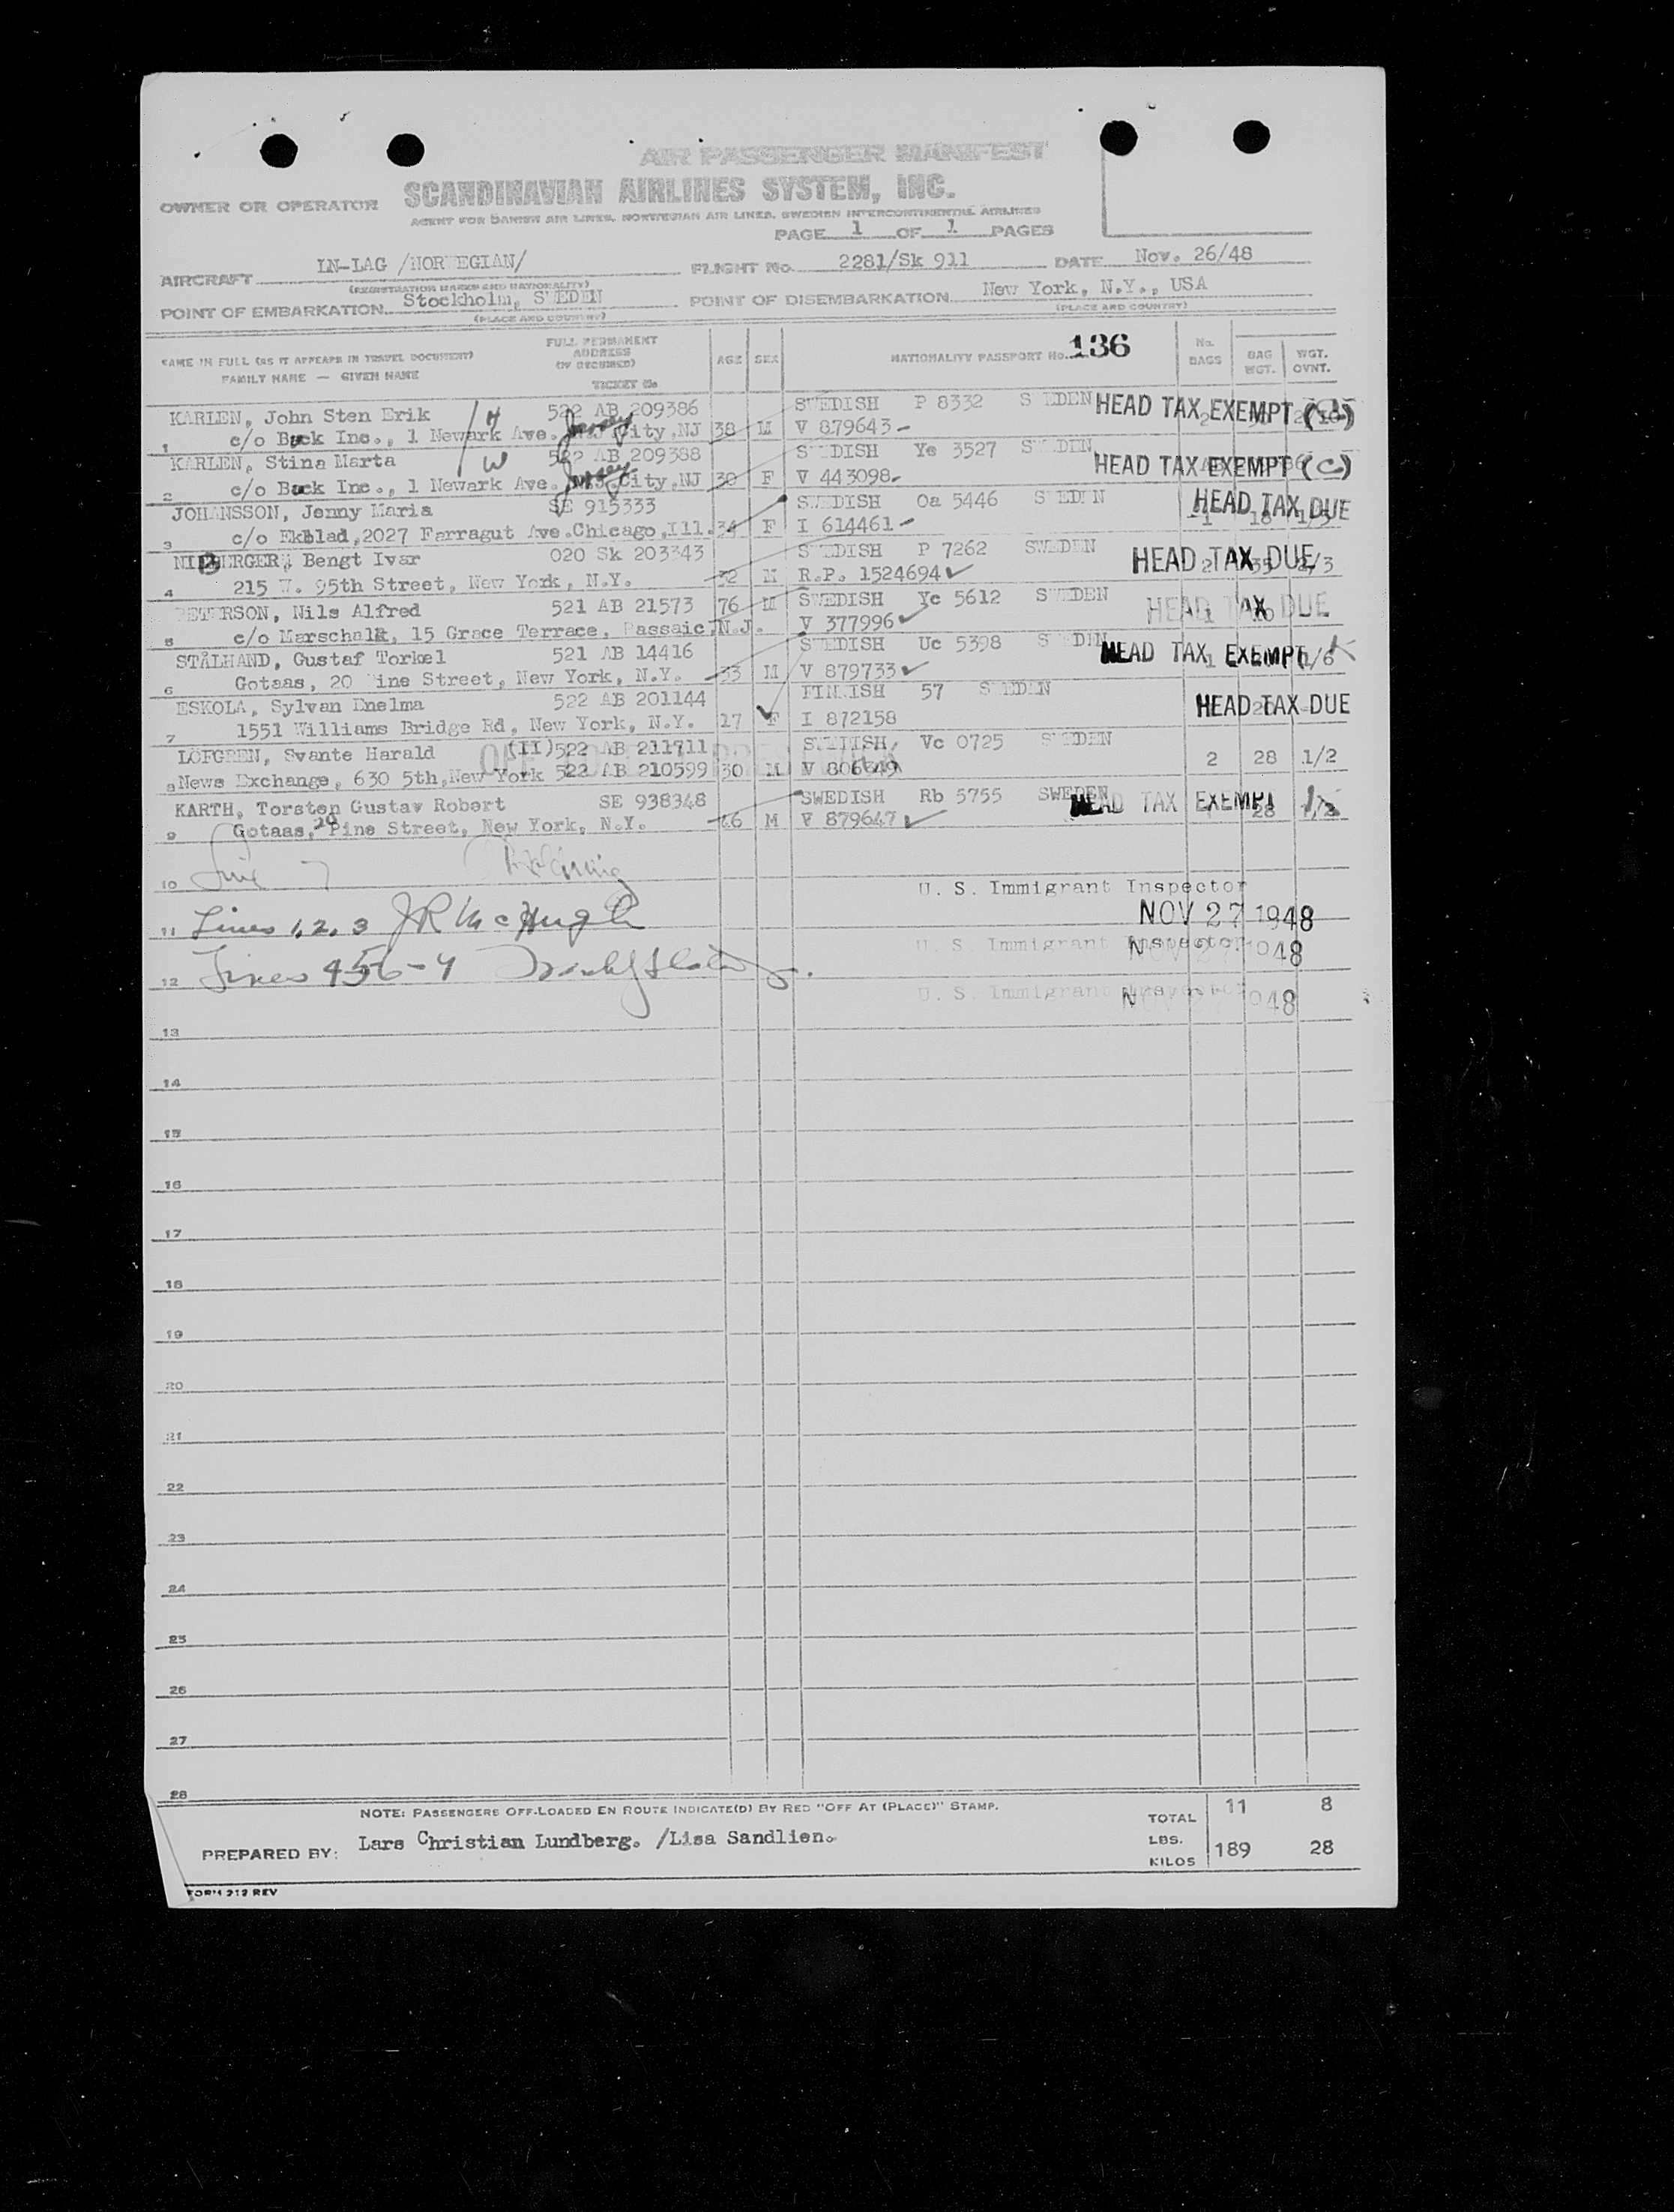 AIR PASSENGER MANIFEST
OWNER OR OPERATOR SCANDINAVIAN AIRLINES SYSTEM, INC.
AGENT FOR DANISH AIR LINES, NORWEGIAN AIR LINES, SWEDISH INTERCONTINENTAL AIRLINES
PAGE 1 OF 1 PAGES
AIRCRAFT LN-LAG /NORWEGIAN/ FLIGHT No. 2281/Sk 911 DATE Nov. 26/48
(REGISTRATION MARKS AND NATIONALITY)
POINT OF EMBARKATION Stockholm, SWEDEN POINT OF DISEMBARKATION New York, N.Y., USA
(PLACE AND COUNTRY) (PLACE AND COUNTRY)
NAME IN FULL (AS IT APPEARS IN TRAVEL DOCUMENT) FAMILY NAME — GIVEN NAME
FULL PERMANENT ADDRESS (IF REQUIRED) TICKET No
AGE SEX NATIONALITY PASSPORT No. 136 No. BAGS BAG WGT. WGT. OVNT.
KARLEN, John Sten Erik H 522 AB 209386 SWEDISH P 8332 SWEDEN HEAD TAX EXEMPT
1 c/o Buck Inc., 1 Newark Ave. Jersey City,NJ 38 M V 879643
KARLEN, Stina Marta W 522 AB 209388 SWEDISH Ye 3527 SWEDEN HEAD TAX EXEMPT (C)
2 c/o Buck Inc., 1 Newark Ave. Jersey City,NJ 30 F V 443098
JOHANSSON, Jenny Maria SE 915333 SWEDISH Oa 5446 SWEDEN HEAD TAX DUE
3 c/o Ekblad,2027 Farragut Ave.Chicago,Ill. 34 F I 614461 1 18 1/3
Bengt Ivar 020 Sk 203343 SWEDISH P 7262 SWEDEN HEAD TAX DUE
4 215 W. 95th Street, New York, N.Y. 32 M R.P. 1524694 2 35 1/3
PETERSON, Nils Alfred 521 AB 21573 76 M SWEDISH Yc 5612 SWEDEN HEAD TAX DUE
5 c/o Marschalk, 15 Grace Terrace, Passaic,N.J. V 377996 1 16
STÅLHAND, Gustaf Torkel 521 AB 14416 SWEDISH Uc 5398 SWEDEN HEAD TAX EXEMPT
6 Gotaas, 20 Pine Street, New York, N.Y. 33 M V 879733 1 1/6
ESKOLA, Sylvan Enelma 522 AB 201144 FINNISH 57 SWEDEN HEAD TAX DUE
7 1551 Williams Bridge Rd, New York, N.Y. 17 F I 872158
LÖFGREN, Svante Harald (II)522 AB 211711 SWEDISH Vc 0725 SWEDEN
8 News Exchange, 630 5th,New York 522 AB 210599 30 M V 806649 2 28 1/2
KARTH, Torsten Gustav Robert SE 938348 SWEDISH Rb 5755 SWEDEN HEAD TAX EXEMPT
9 Gotaas, 20 Pine Street, New York, N.Y. 46 M V 879647 28 1/2
10 Line 7 U. S. Immigrant Inspector
11 Lines 1, 2, 3 JR McHugh NOV 27 1948
U. S. Immigrant Inspector
NOV 27 1948
12 Lines 4 5 6 - 9
U. S. Immigrant Inspector
NOV 27 1948
13
14
15
16
17
18
19
20
21
22
23
24
25
26
27
28
NOTE: PASSENGERS OFF-LOADED EN ROUTE INDICATE(D) BY RED "OFF AT (PLACE)" STAMP.
TOTAL 11 8
PREPARED BY: Lars Christian Lundberg. /Lisa Sandlien.
LBS.
KILOS 189 28
FORM 212 REV